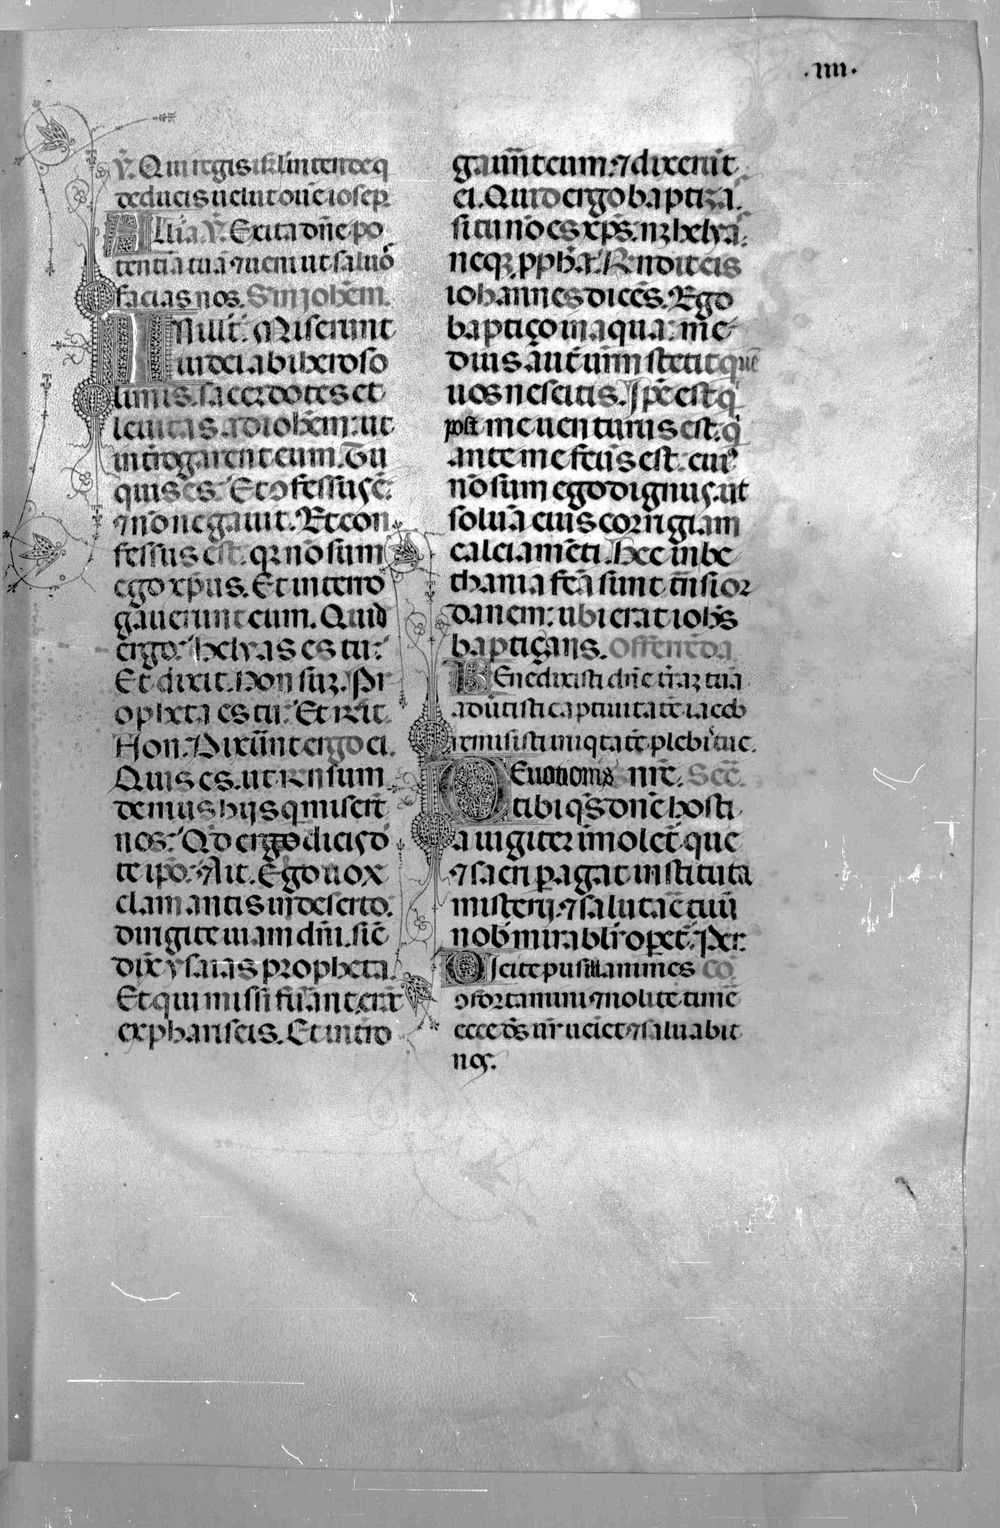 .iiii.
℣. Qui regis isr̄l intende q̄
deducis uelut ouē ioseph
Allīa. ℣. Excita dn̄e po
tentiā tuā ⁊ ueni ut saluō
facias nos. Sm̄ ioh̄em.
In illī t̄. Miserunt
iudei ab iheroso
limis. sacerdotes et
leuitas ad ioh̄em: ut
int̄rogarent eum. Tu
quis es: Et ꝯfessus ē:
⁊ non negauit. Et con
fessus est. qꝛ nō sum
ego xp̄us. Et interro
gauerunt eum. Quid
ergo: helyas es tu:
Et dixit. Non suꝫ. Pr
opheta es tu: Et r̄n̄it.
Non. Dixer̄unt ergo ei.
Quis es. ut r̄nsum
demus hijs q̄ miserūt
nos: Qd̄ ergo dicis d̄
te ipō: Ait. Ego uox
clamantis in deserto.
dirigite uiam dn̄i. sic̄
dix̄ ysaias propheta.
Et qui missi fuāant. erāt
ex phariseis. Et int̄ro
gauer̄nt eum: ⁊ dixerūt
ei. Quid ergo baptiza
si tu nō es xp̄s. nꝫ helyas:
neqꝫ pp̄h̄a: R̄ndit eis
iohannes dicēs. Ego
baptiço in aqua: me
dius aūt ur̄m stetit quē
uos nescitis. Ip̄e est q̄
post me uenturus est. q̄
ante me fc̄us est: cui᷒
nō sum ego dignus. ut
soluā eius corrigiam
calciamēti. Hec in be
thania fc̄a sunt t̄nsior
danem: ubi erat ioh̄s
baptiçans. Offerēda
Benedixisti dn̄e t̄raꝫ tuā
aduētisti captiuitatē iacob
remisisti iniqtatē plebi᷒ tue.
Deuotionis nr̄e. Sec̄.
tibi q̄s dn̄e hosti
a iugiter īmolet̄. que
⁊ sacri ꝑagat instituta
misterij. ⁊ salutāe tuū
nob̄ mirabilit̄ oꝑet̄. Per.
Dicite pusillanimes cō
ꝯfortamini ⁊ nolite timē
ecce ds̄ nr̄ ueiet ⁊ saluabit
nos.